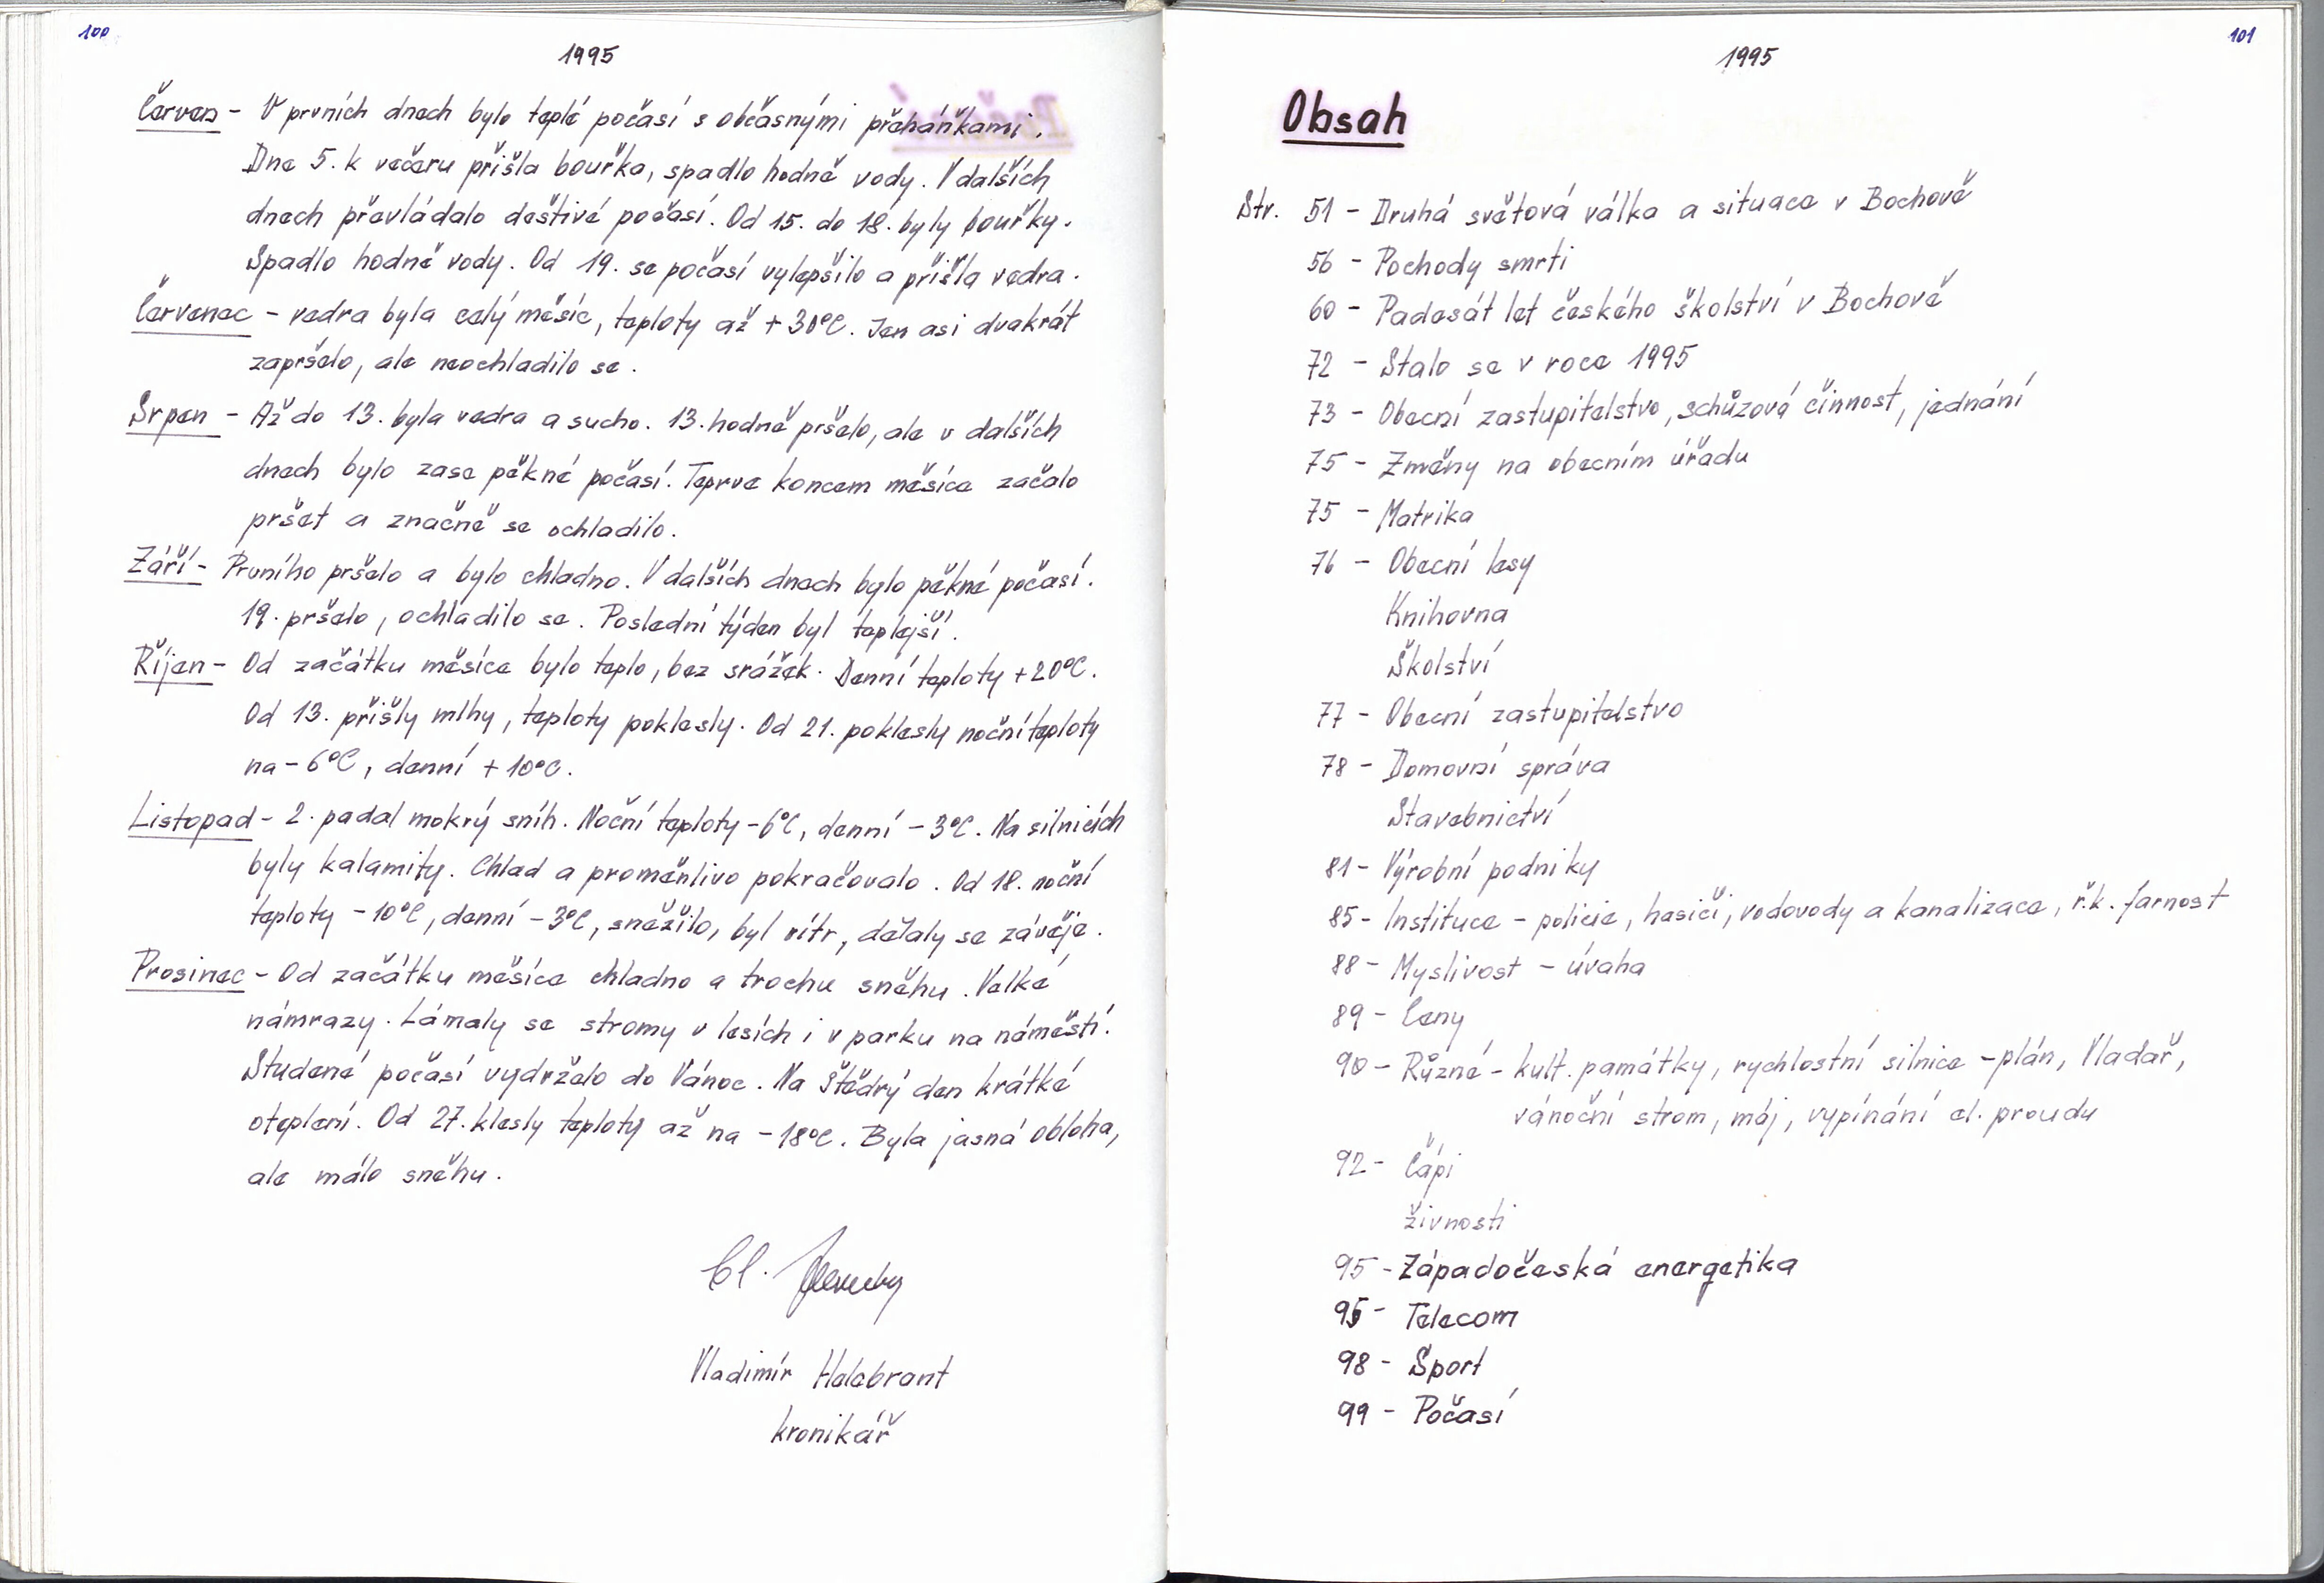 100
1995
Červen - V prvních dnech bylo teplé počasí s občasnými přeháňkami.
Dne 5. k večeru přišla bouřka, spadlo hodně vody. V dalších
dnech převládalo deštivé počasí. Od 15. do 18. byly bouřky.
Spadlo hodně vody. Od 19. se počasí vylepšilo a přišla vedra.
Červenec - vedra byla celý měsíc, teploty až +30°C. Jen asi dvakrát
zapršelo, ale neochladilo se.
Srpen - Až do 13. byla vedra a sucho. 13. hodně pršelo, ale v dalších
dnech bylo zase pěkné počasí. Teprve koncem měsíce začalo
pršet a značně se ochladilo.
Září - Prvního pršelo a bylo chladno. V dalších dnech bylo pěkné počasí.
19. pršelo, ochladilo se. Poslední týden byl teplejší.
Říjen - Od začátku měsíce bylo teplo, bez srážek. Denní teploty +20°C.
Od 13. přišly mlhy, teploty poklesly. Od 21. poklesly noční teploty
na -6°C, denní +10°C.
Listopad - 2. padal mokrý sníh. Noční teploty -6°C, denní -3°C. Na silnicích
byly kalamity. Chlad a proměnlivo pokračovalo. Od 18. noční
teploty -10°C, denní -3°C, sněžilo, byl vítr, dělaly se závěje.
Prosinec - Od začátku měsíce chladno a trochu sněhu. Velké
námrazy. Lámaly se stromy v lesích i v parku na náměstí.
Studené počasí vydrželo do Vánoc. Na Štědrý den krátké
oteplení. Od 27. klesly teploty až na -18°C. Byla jasná obloha,
ale málo sněhu.
Vladimír Halabrant
kronikář
101
1995
Obsah
Str. 51 - Druhá světová válka a situace v Bochově
56 - Pochody smrti
60 - Padesát let českého školství v Bochově
72 - Stalo se v roce 1995
73 - Obecní zastupitelstvo, schůzová činnost, jednání
75 - Změny na obecním úřadu
75 - Matrika
76 - Obecní lesy
Knihovna
Školství
77 - Obecní zastupitelstvo
78 - Domovní správa
Stavebnictví
81 - Výrobní podniky
85 - Instituce - policie, hasiči, vodovody a kanalizace, ř.k. farnost
88 - Myslivost - úvaha
89 - Ceny
90 - Různé - kult. památky, rychlostní silnice - plán, Vladař,
vánoční strom, máj, vypínání el. proudu
92 - Čápi
živnosti
95 - Západočeská energetika
95 - Telecom
98 - Sport
99 - Počasí